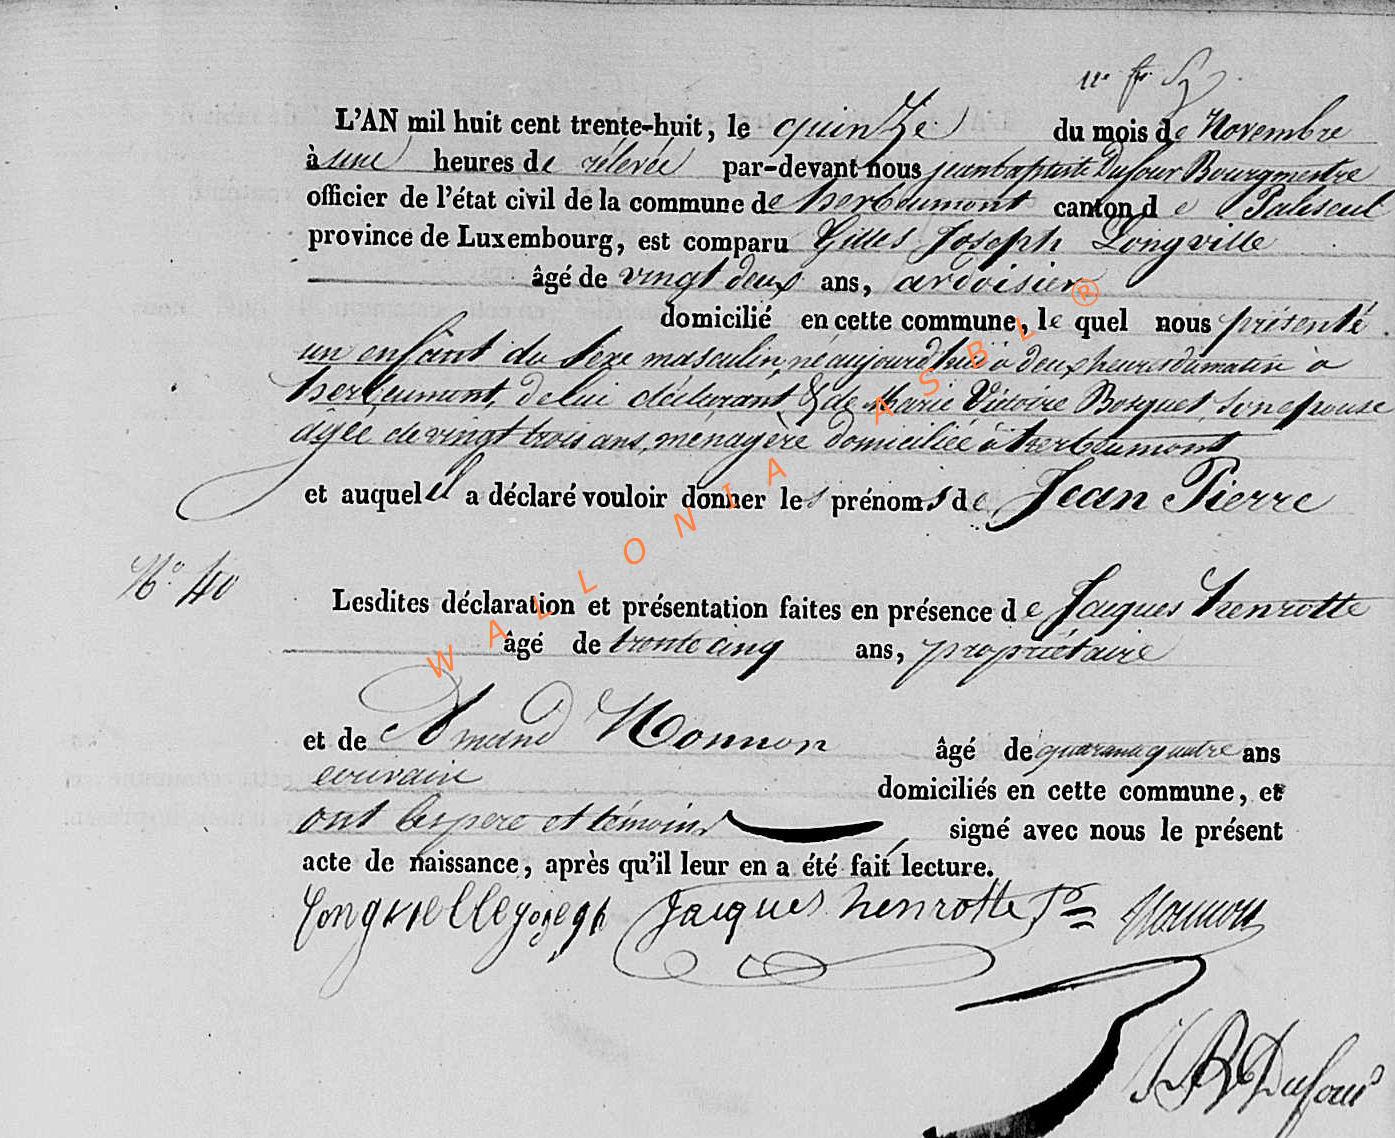 L'AN mil huit cent trente-huit, le quinze du mois de Novembre
à une heures de rélevée par-devant nous jean baptiste Dufour Bourgmestre
officier de l'état civil de la commune de herbeumont canton de Paliseul
province de Luxembourg, est comparu Gilles Joseph Longville
âgé de vingt deux ans, ardoisier
domicilié en cette commune, le quel nous présenté
un enfant du sexe masculin, né aujourd'hui à deux heures du matin à
herbeumont, de lui déclarant & de Marie Victoire Bosquet, son epouse
agée de vingt trois ans, ménagère domiciliée à herbeumont
et auquel il a déclaré vouloir donner les prénoms de Jean Pierre
N.° 40
Lesdites déclaration et présentation faites en présence de Jacques henrotte
âgé de trente cinq ans, propriétaire
et de Amand Nonnon âgé de quarante quatre ans
ecrivain domiciliés en cette commune, et
ont les pere et témoins signé avec nous le présent
acte de naissance, après qu'il leur en a été fait lecture.
Longvielle josegh Jacques henrotte Nonnon
J B Dufour
WALLONIA ASBL ®